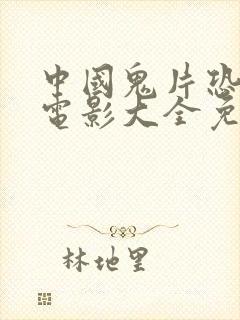 中國鬼片恐
電影大全免
林地里